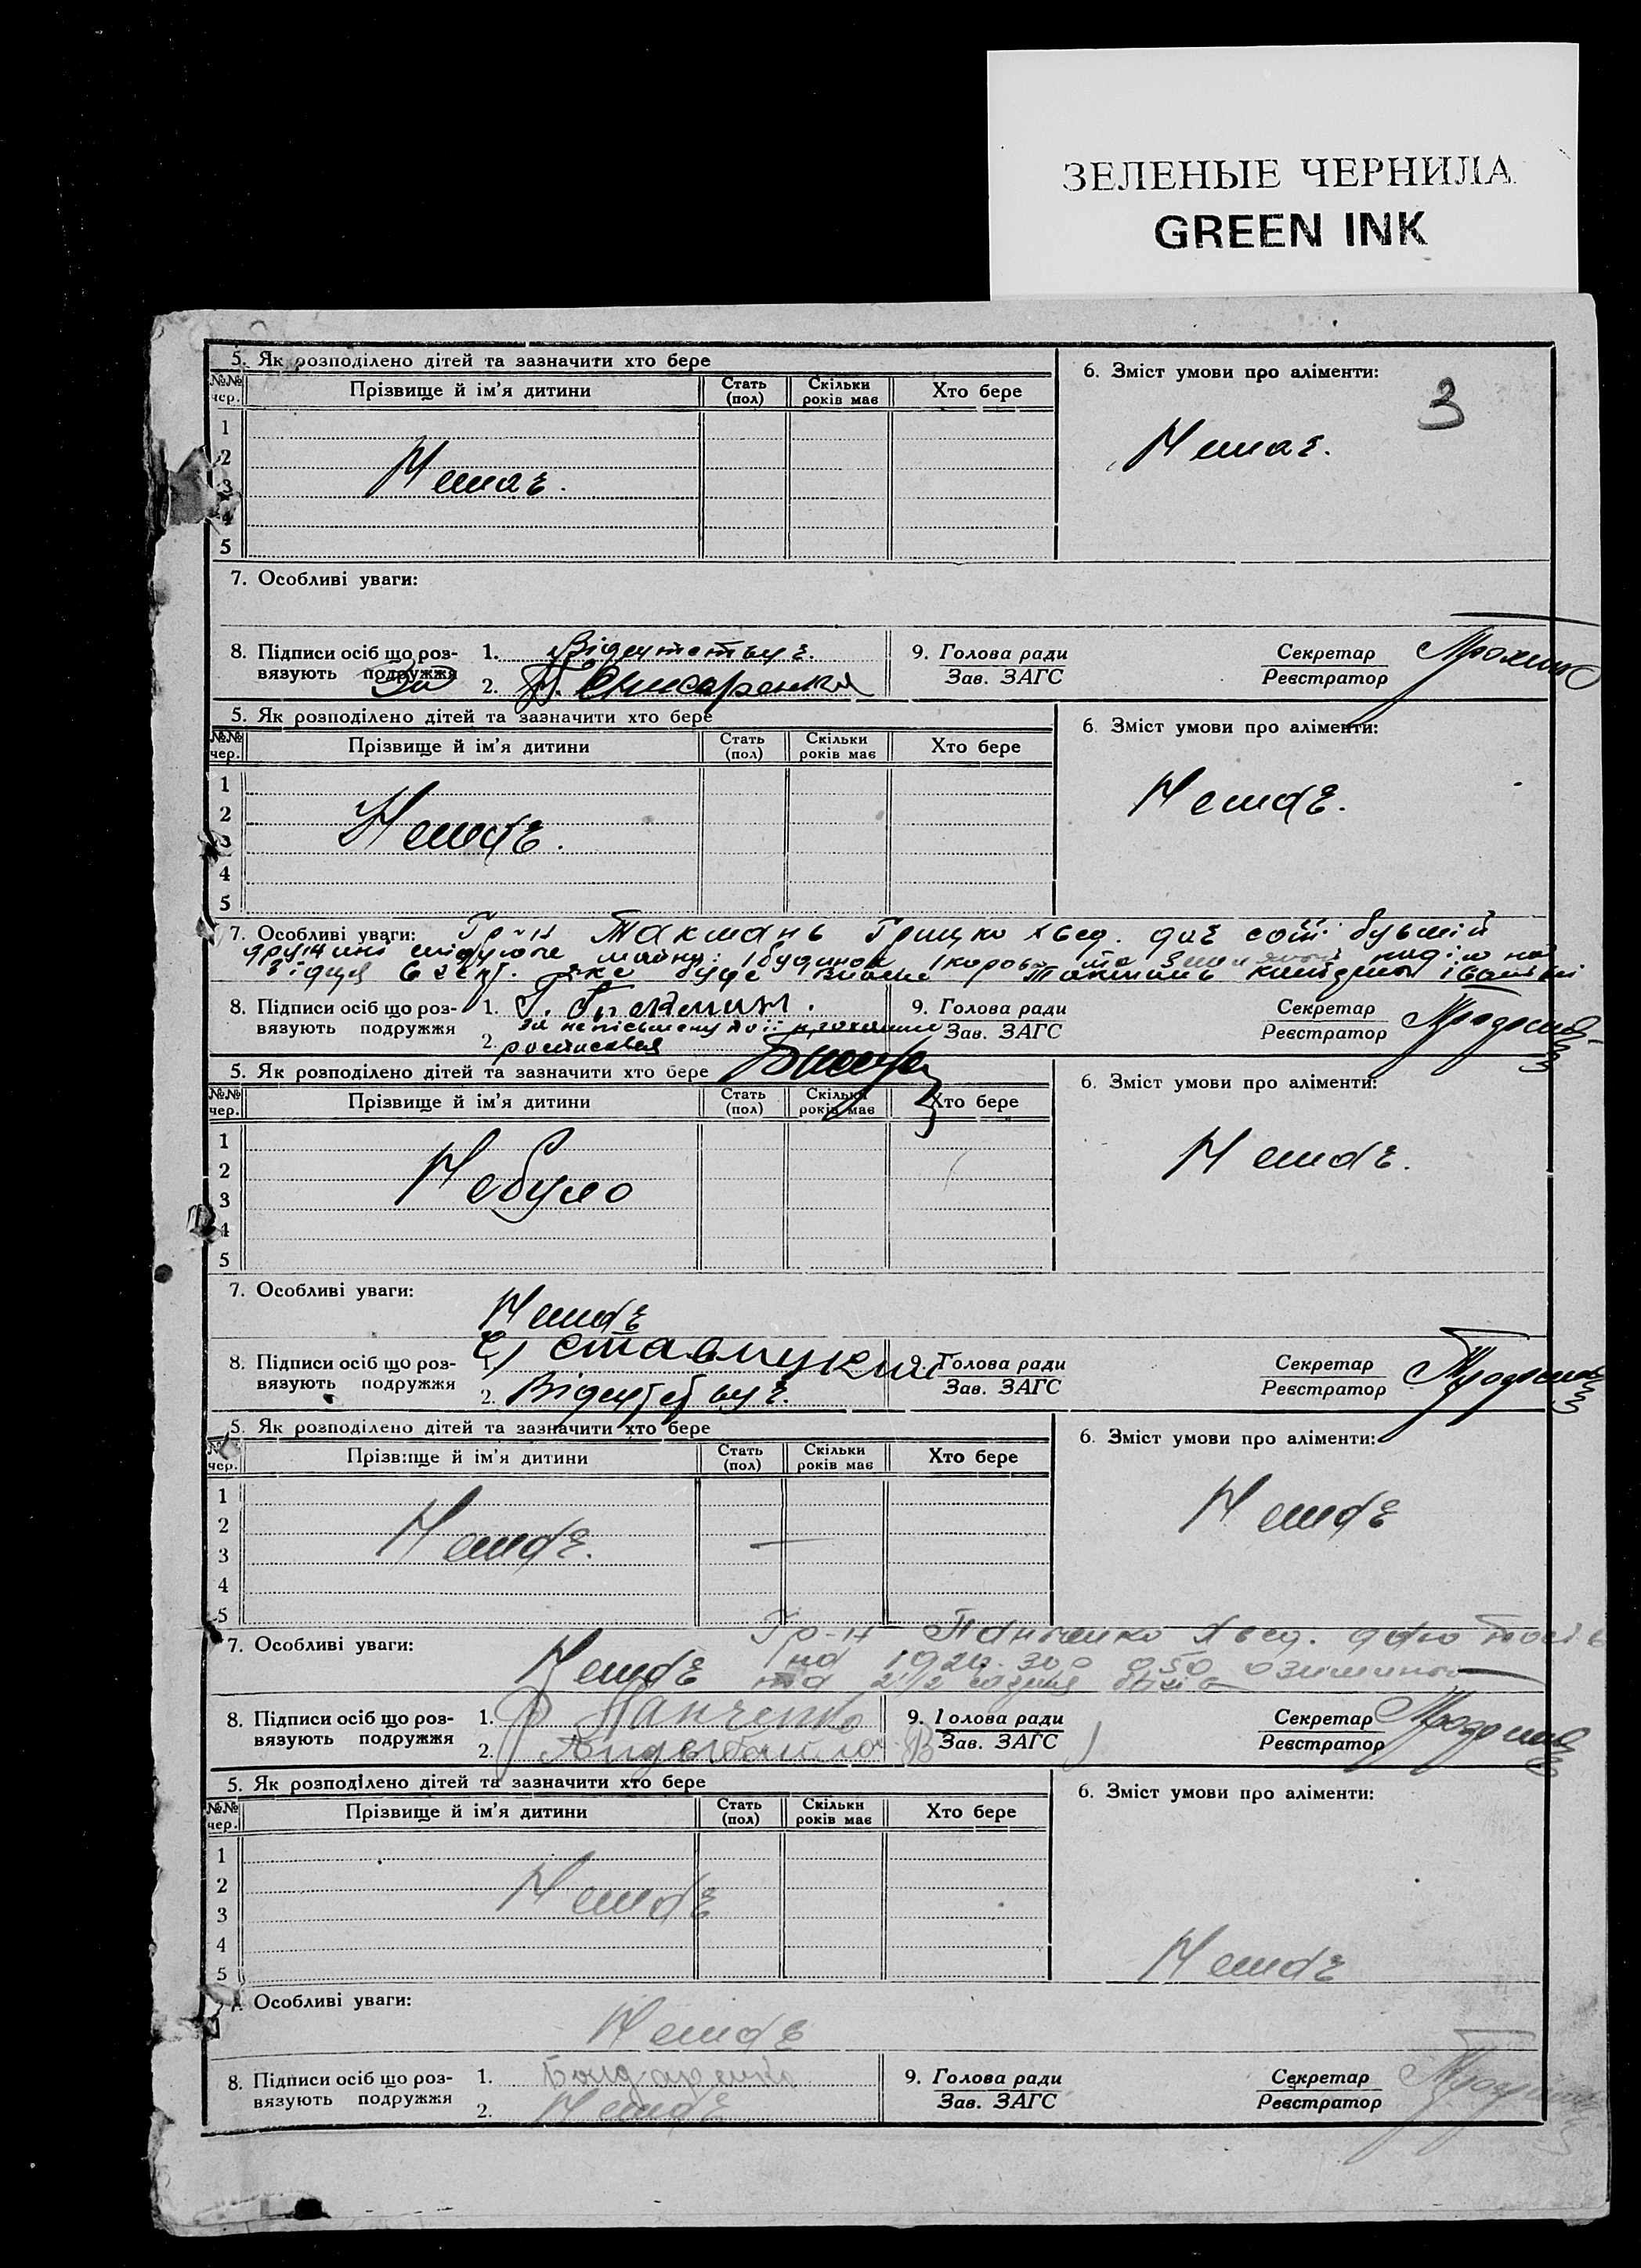 ЗЕЛЕНЫЕ ЧЕРНИЛА
GREEN INK
5. Як розподілено дітей та зазначити хто бере
6. Зміст умови про аліменти:
3
№№ чер. Прізвище й ім'я дитини Стать (пол) Скільки років має Хто бере
1
2
3
4
5
Немає.
Немає.
7. Особливі уваги:
8. Підписи осіб що роз- 1. Відсутствує.
вязують подружжя 2.
9. Голова ради Секретар
Зав. ЗАГС Реєстратор
5. Як розподілено дітей та зазначити хто бере
6. Зміст умови про аліменти:
№№ чер. Прізвище й ім'я дитини Стать (пол) Скільки років має Хто бере
1
2
3
4
5
Немає.
Немає.
7. Особливі уваги: Гр-н Такмань Грицко Хвед. дає своїй бувшій
дружині слідуюче майно: 1 будинок 1 корову та наділ на
буде
8. Підписи осіб що роз- 1.
вязують подружжя 2. за неписьмену по її прозьбі
росписався
9. Голова ради Секретар
Зав. ЗАГС Реєстратор
5. Як розподілено дітей та зазначити хто бере
6. Зміст умови про аліменти:
№№ чер. Прізвище й ім'я дитини Стать (пол) Скільки років має Хто бере
1
2
3
4
5
Небуло
Немає.
7. Особливі уваги:
Немає
8. Підписи осіб що роз- 1.
вязують подружжя 2. Відсутствує.
9. Голова ради Секретар
Зав. ЗАГС Реєстратор
5. Як розподілено дітей та зазначити хто бере
6. Зміст умови про аліменти:
№№ чер. Прізвище й ім'я дитини Стать (пол) Скільки років має Хто бере
1
2
3
4
5
Немає.
Немає
Гр-н Панченко Хвед. даю
7. Особливі уваги: Немає
8. Підписи осіб що роз- 1. Панченко
вязують подружжя 2.
9. Голова ради Секретар
Зав. ЗАГС Реєстратор
5. Як розподілено дітей та зазначити хто бере
6. Зміст умови про аліменти:
№№ чер. Прізвище й ім'я дитини Стать (пол) Скільки років має Хто бере
1
2
3
4
5
Немає
Немає
Особливі уваги:
Немає
8. Підписи осіб що роз- 1. Бондаренко
вязують подружжя 2. Немає
9. Голова ради Секретар
Зав. ЗАГС Реєстратор